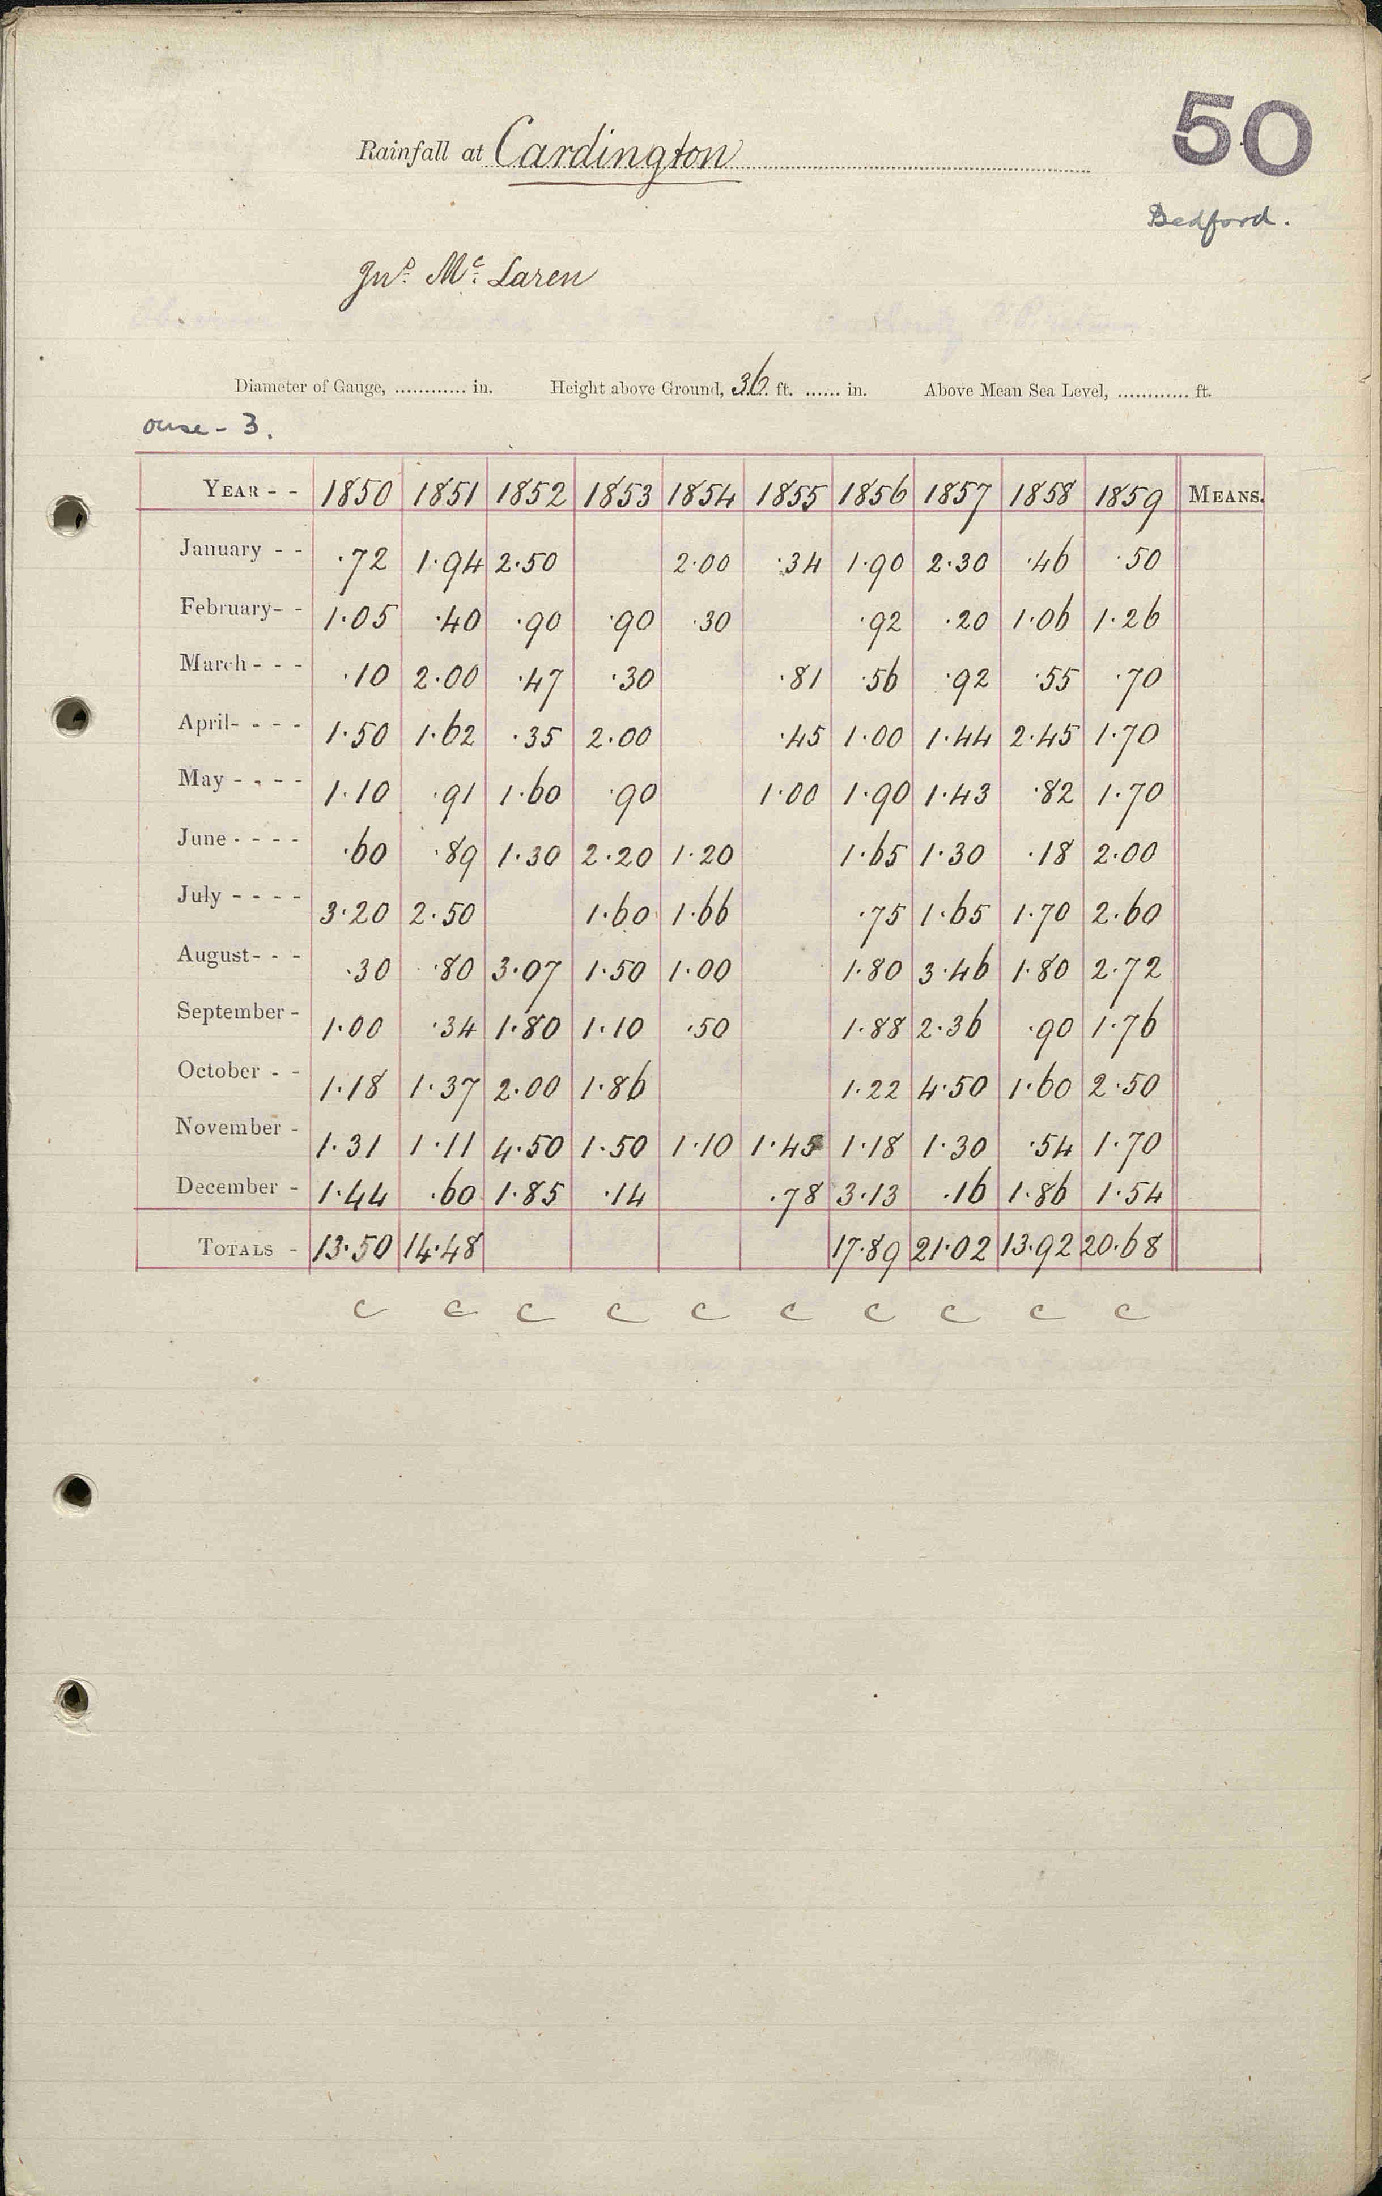 50
Rainfall at Cardington
Bedford.
Jno. Mc. Laren
Diameter of Gauge, ............ in. Height above Ground, 36 ft. ...... in. Above Mean Sea Level, ............ ft.
Ouse - 3.
YEAR - - 1850 1851 1852 1853 1854 1855 1856 1857 1858 1859 MEANS.
January - - ·72 1·94 2·50 2·00 ·34 1·90 2·30 ·46 ·50
February- - 1·05 ·40 ·90 ·90 ·30 ·92 ·20 1·06 1·26
March - - - ·10 2·00 ·47 ·30 ·81 ·56 ·92 ·55 ·70
April- - - - 1·50 1·62 ·35 2·00 ·45 1·00 1·44 2·45 1·70
May - - - - 1·10 ·91 1·60 ·90 1·00 1·90 1·43 ·82 1·70
June - - - - ·60 ·89 1·30 2·20 1·20 1·65 1·30 ·18 2·00
July - - - - 3·20 2·50 1·60 1·66 ·75 1·65 1·70 2·60
August- - - ·30 ·80 3·07 1·50 1·00 1·80 3·46 1·80 2·72
September - 1·00 ·34 1·80 1·10 ·50 1·88 2·36 ·90 1·76
October - - 1·18 1·37 2·00 1·86 1·22 4·50 1·60 2·50
November - 1·31 1·11 4·50 1·50 1·10 1·45 1·18 1·30 ·54 1·70
December - 1·44 ·60 1·85 ·14 ·78 3·13 ·16 1·86 1·54
TOTALS - 13·50 14·48 17·89 21·02 13·92 20·68
c c c c c c c c c c